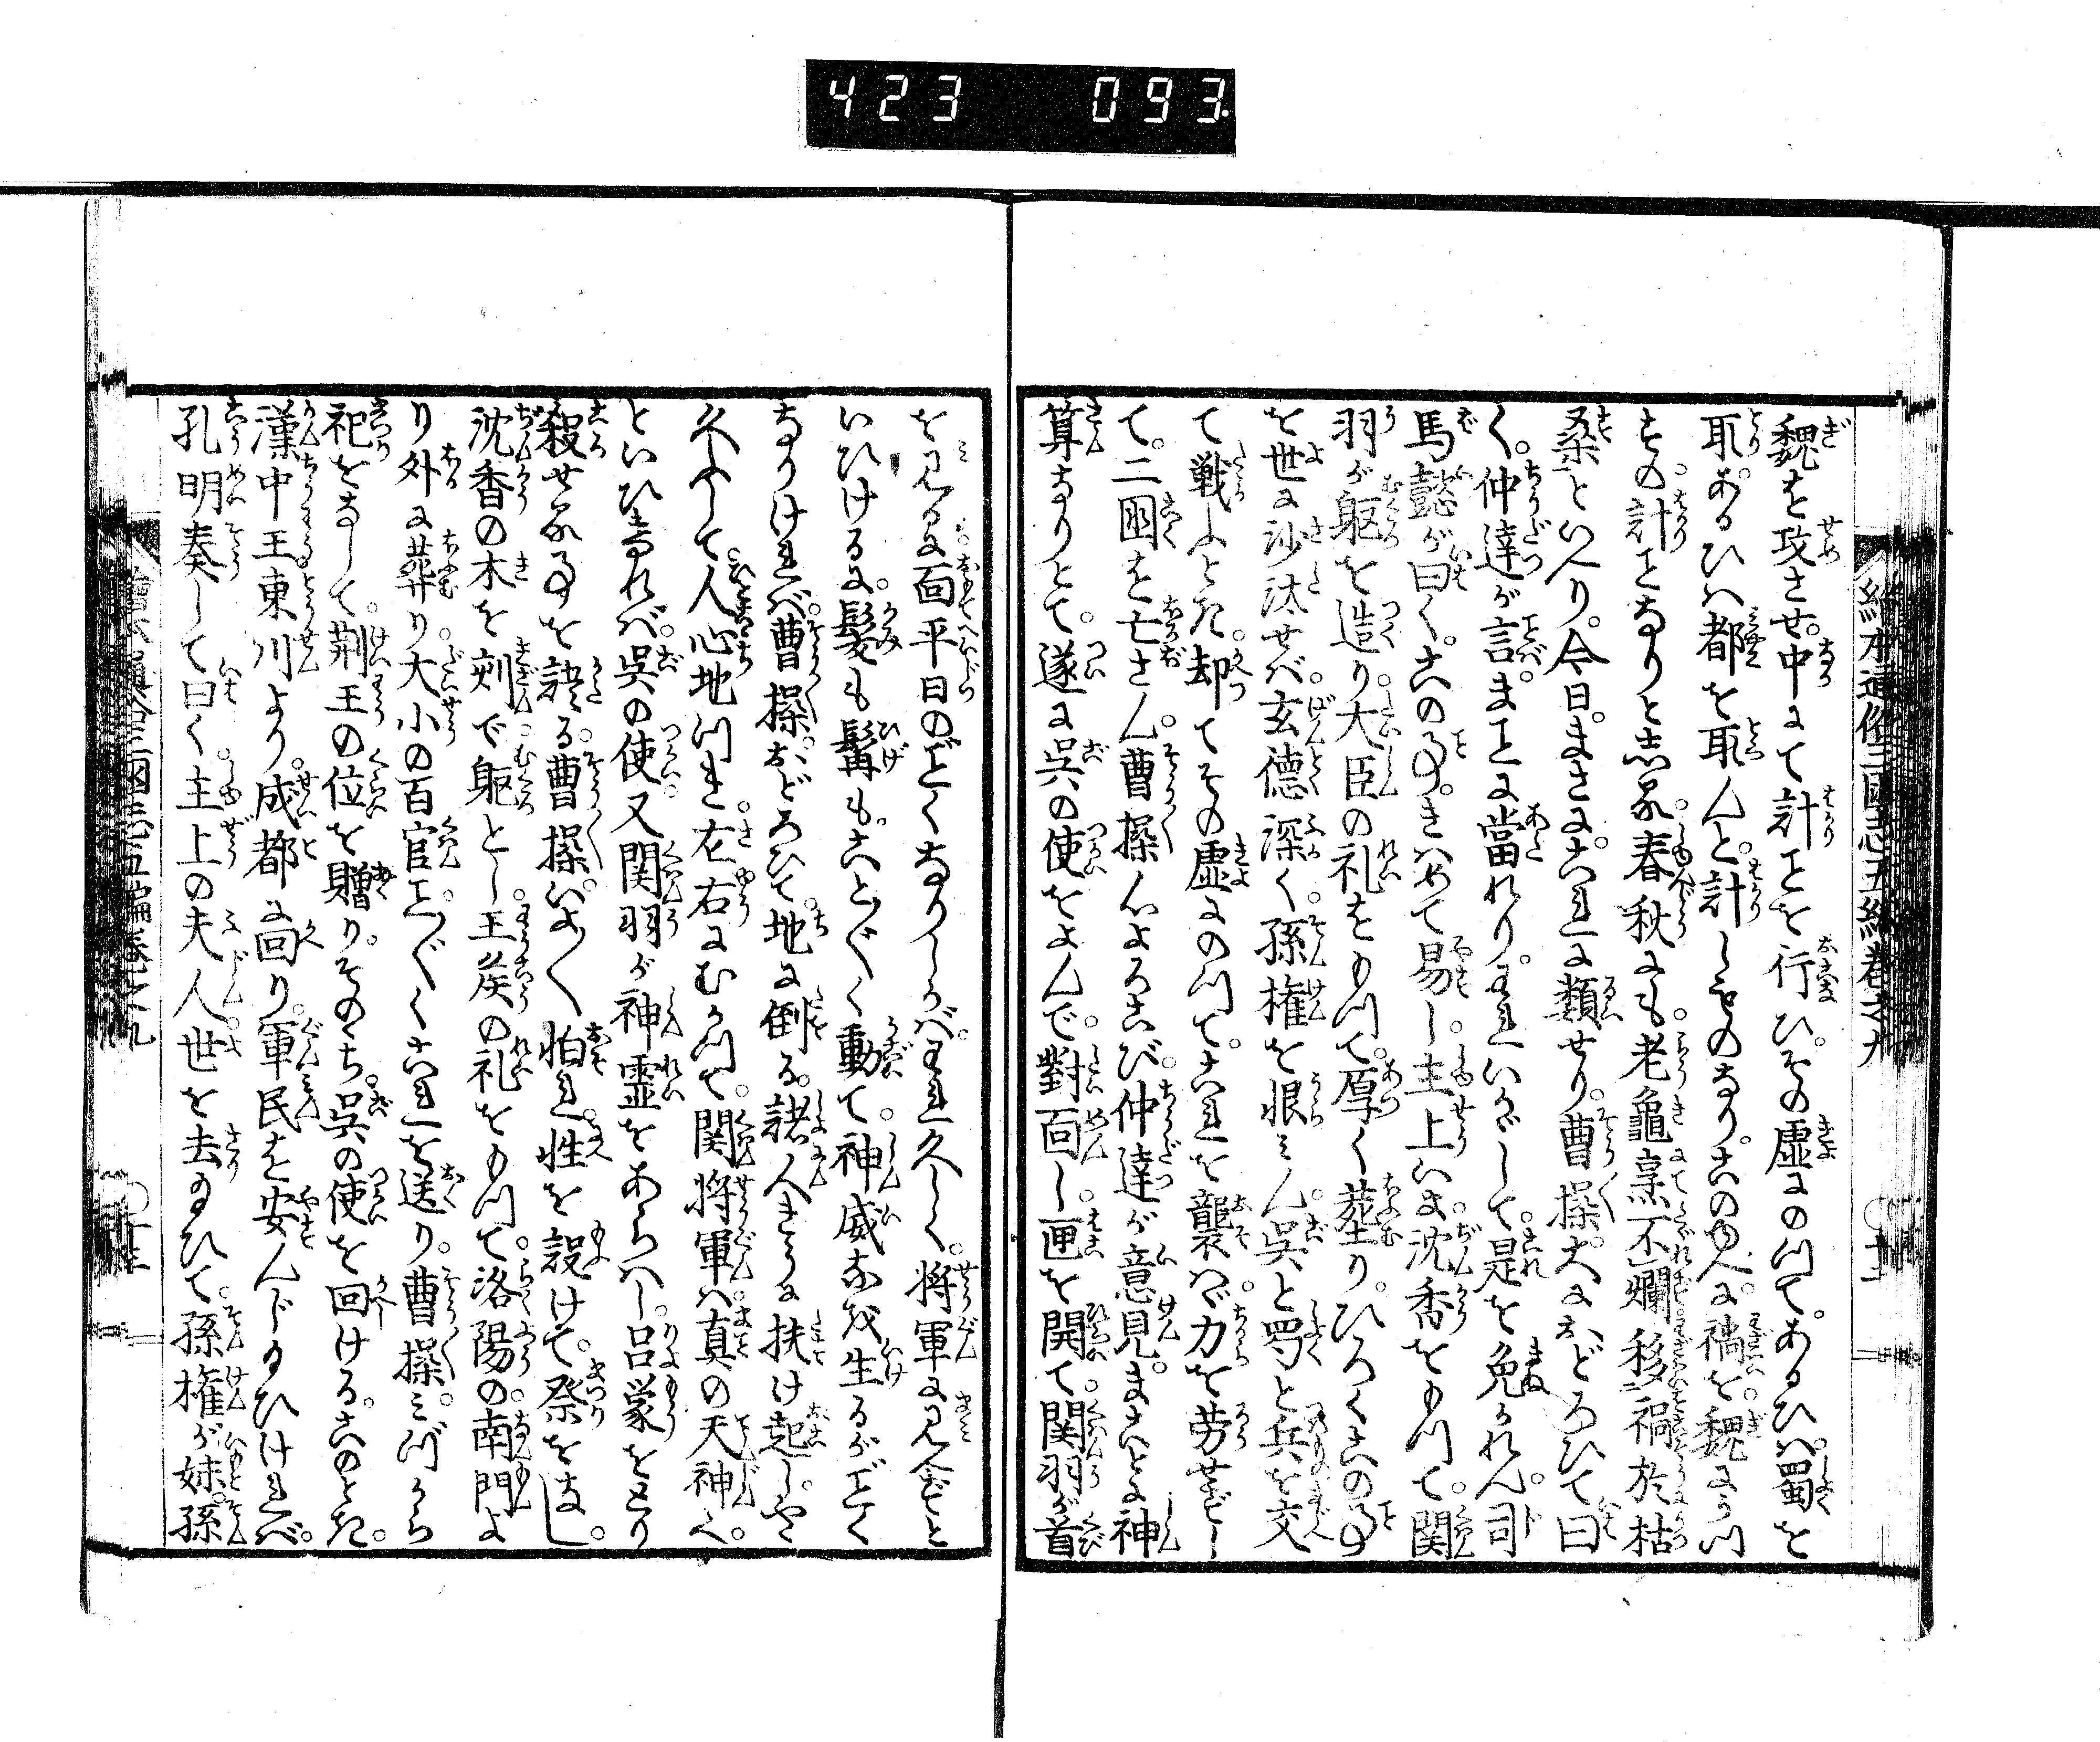 423 093
繪本通俗三國志五編巻之九
魏を攻させ。中にて計ことを行ひ。その虚にのつて。あるひハ蜀を
取。あるひハ都を取んと。計しものなり。この人に禍を。魏にうつ
すの。計ことなりと志る。春秋にも。老龜烹不爛移禍於枯
桑といへり。今日。まさに。これに類せり。曹操。大におどろひて曰
く。仲達が言。まことに當れり。われいかゞして。是を免かれん。司
馬懿が曰く。この事。きハめて易し。主上いま。沈香をもつて。関
羽が躯を造り。大臣の礼をもつて。厚く葬り。ひろくこの事
を世に沙汰せバ。玄德深く。孫権を恨ミん。呉と蜀と兵を交
て戦ふとき。却てその虚にのつて。これを襲ハヾ。力を労せずし
て。二国を亡さん。曹操心よろこび。仲達が意見。まことに神
算なりとて。遂に呉の使をよんで。對面し。匣を開て。関羽が首
を見るに。面平日のごとくなりしかバ。われ久しく。将軍に見へずと
いひけるに。髪も髯も。ことごとく動て。神威なを生るがごとく
なりけれバ。曹操。おどろひて。地に倒る。諸人きうに扶け起し。やゝ
久ふして。人心地つき。左右にむかつて。関将軍ハ。真の天神へ。
といひ居れバ。呉の使。又関羽が神霊をあらハし。呂蒙をとり
殺せる事を語る。曹操。いよ〳〵怕れ。牲を設けて。祭をなし。
沈香の木を刻で。躯とし。王侯の礼をもつて。洛陽の。南門よ
り外に葬り。大小の百官。ことごとくこれを送り。曹操。ミづから
祀をなして。荆王の位を贈り。そのゝち。呉の使を回ける。このとき。
漢中王。東川より。成都に回り。軍民を安んじ玉ひけれバ。
孔明奏して曰く。主上の夫人。世を去玉ひて。孫権が妹。孫